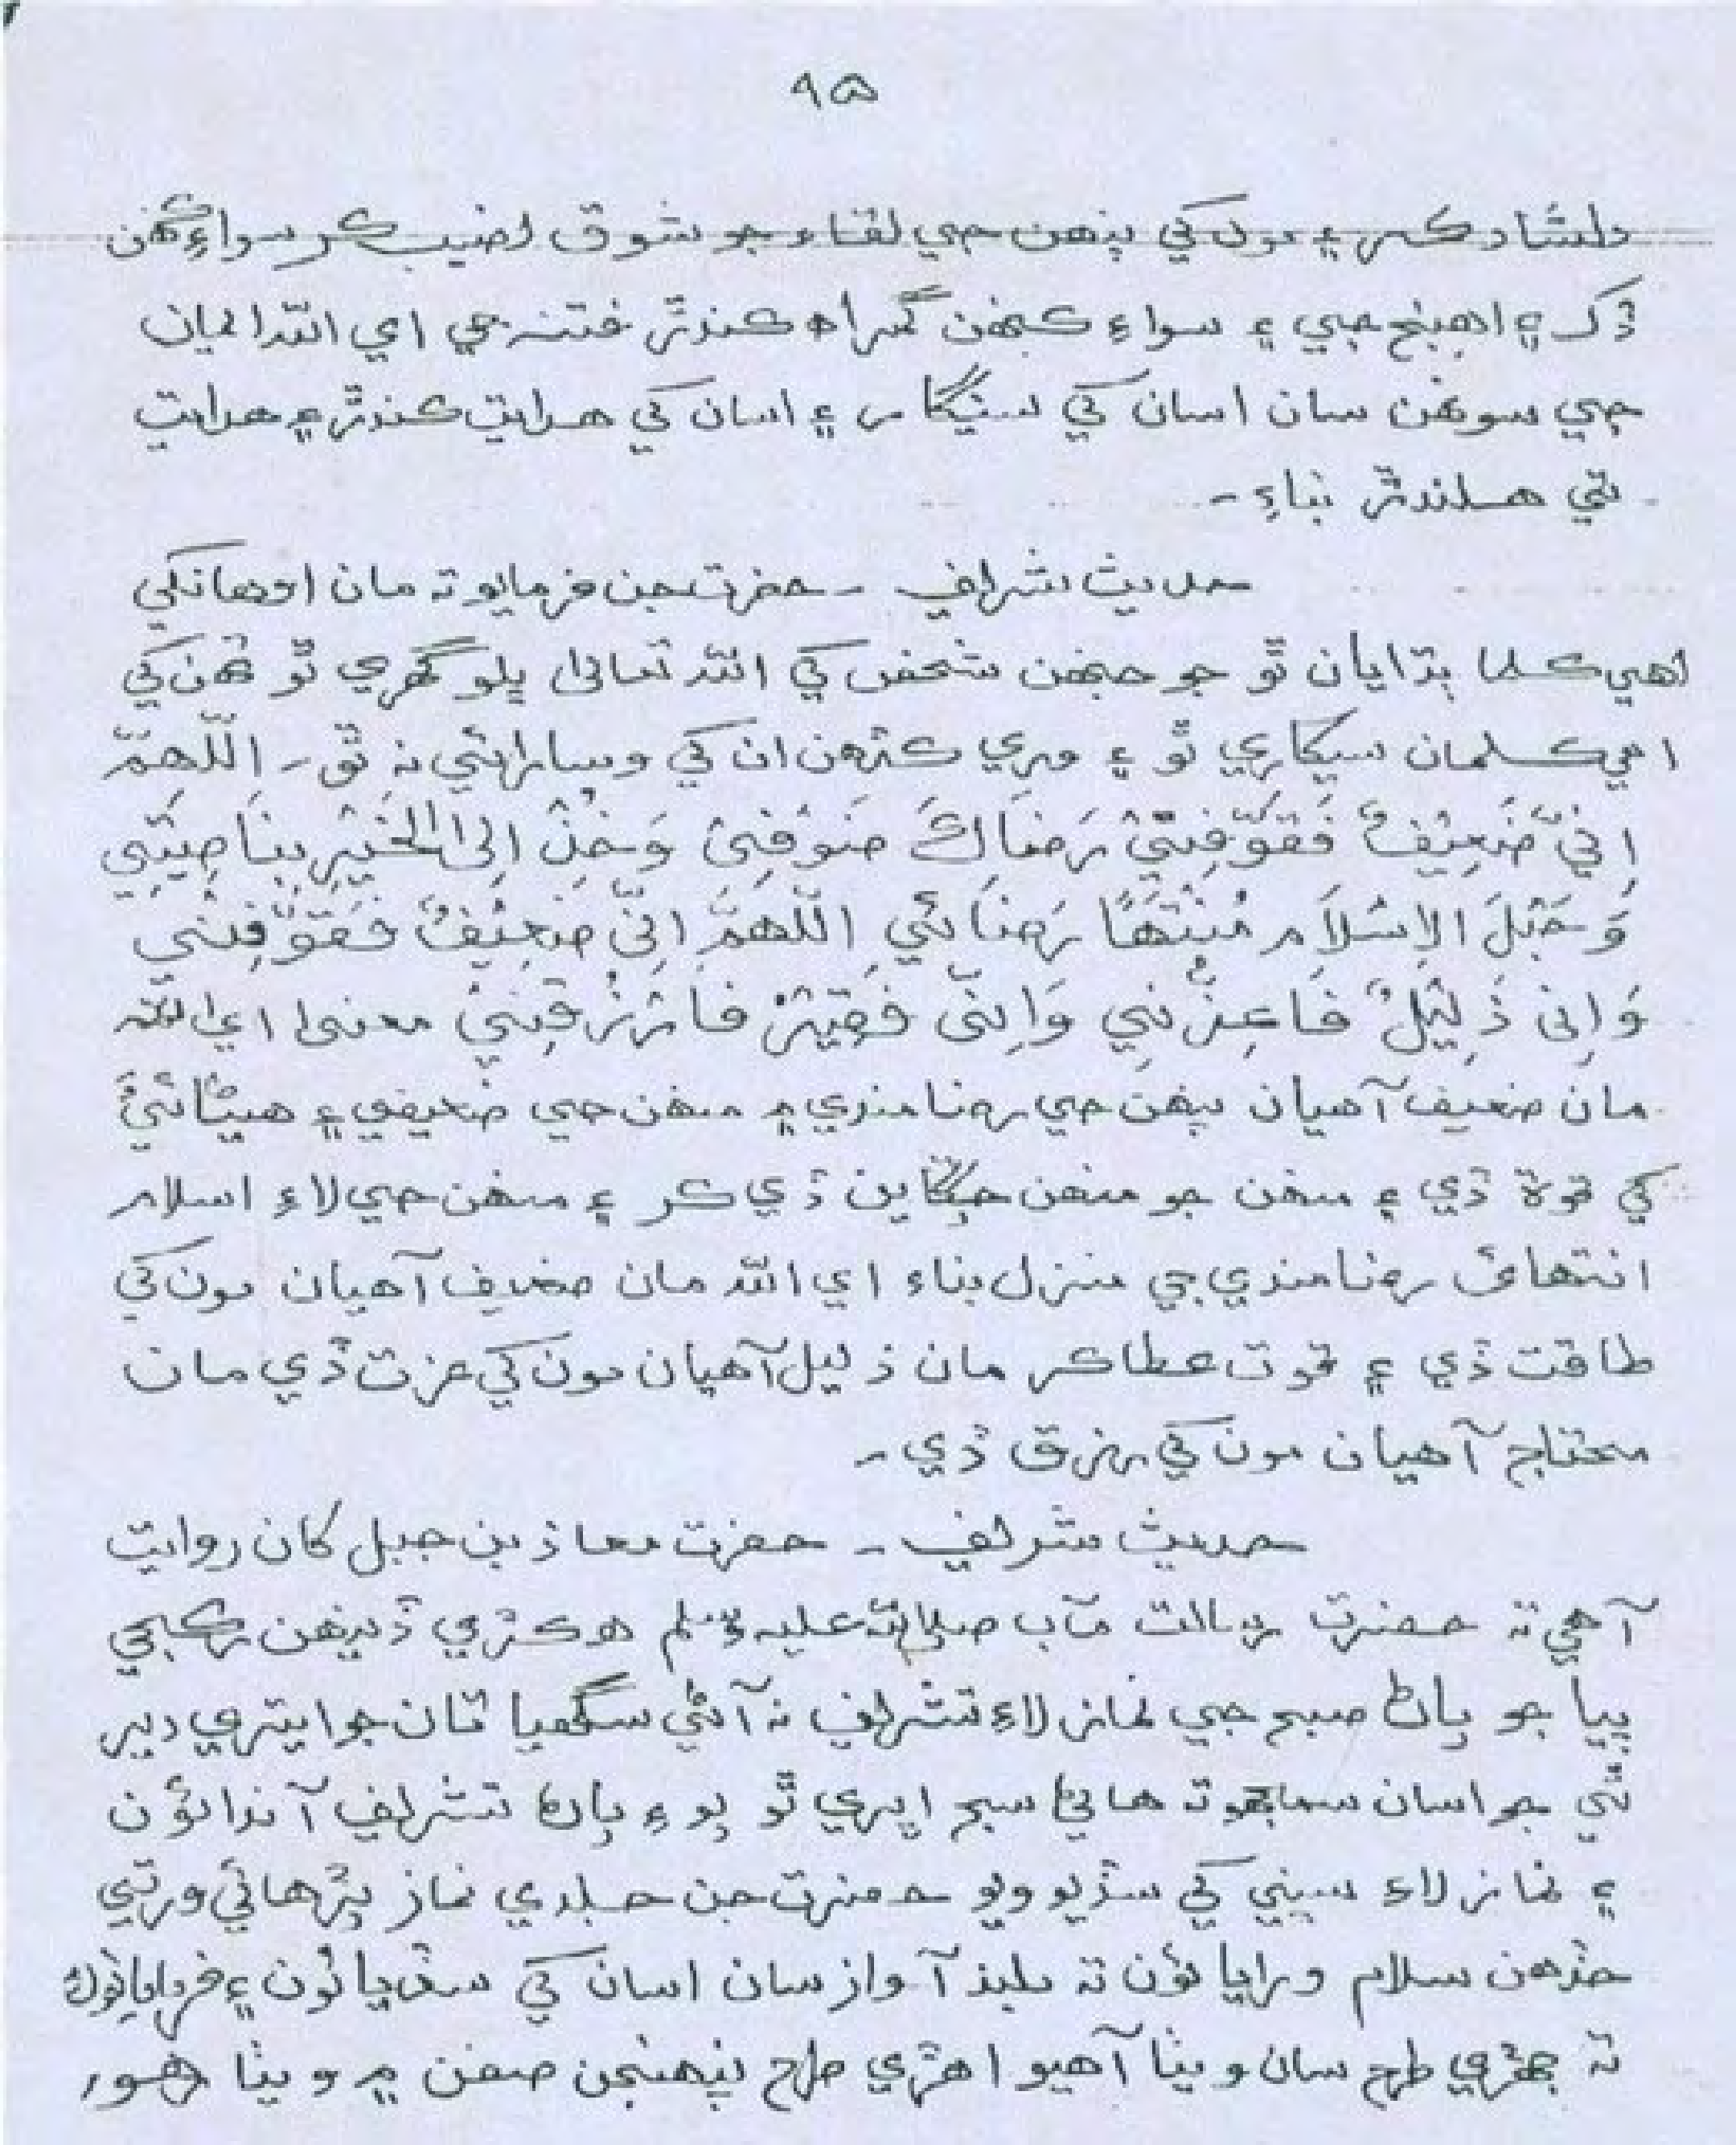 ٩٥
دلشاد ڪر ۽ مون کي پنهن جي لقاء جو شوق نصيب ڪر سواءِ ڪنهن
ڏک ۽ اهنج جي ۽ سواءِ ڪنهن گمراه ڪندڙ فتنہ جي اي الله ايمان
جي سونهن سان اسان کي سينگار ۽ اسان کي هدايت ڪندڙ ۽ هدايت
تي هلندڙ بناءِ -
حديث شريف - حضرت جن فرمايو تہ مان اوهانکي
اهي ڪلما ٻڌايان ٿو جو جنهن شخص کي الله تعالىٰ ڀلو گهري ٿو تنهن کي
اهي ڪلمان سيکاري ٿو ۽ وري ڪڏهن ان کي وسارائي نہ ٿو - اَللّٰهُمَّ
اِنِّيْ ضَعِيْفٌ فَقَوِّفِيْ رَضَاكَ ضَعْفِىْ وَخُذْ اِلَى الْخَيْرِ بِنَاصِيَتِي
وَجَعَلَ الْاِسْلَامَ مُنْتَهَا رَضَائي اَللّٰهُمَّ اِنِّى ضَعِيْفٌ فَقَوِّنِيْ
وَاِنِّى ذَلِيْلٌ فَاَعِزَّنِي وَاِنِّى فَقِيْرٌ فَارْزُقْنِيْ معنىٰ اي الله
مان ضعيف آهيان پنهن جي رضامندي ۾ منهن جي ضعيفي ۽ هيڻائي
کي قوة ڏي ۽ منهن جو منهن چڱاين ڏي ڪر ۽ منهن جي لاءِ اسلام
انتهائ رضامندي جي منزل بناء اي الله مان ضعيف آهيان مون کي
طاقت ڏي ۽ قوت عطا ڪر مان ذليل آهيان مون کي عزت ڏي مان
محتاج آهيان مون کي رزق ڏي -
حديث شريف - حضرت معاذ بن جبل کان روايت
آهي تہ حضرت رسالت مآب صلى الله عليہ وسلم هڪڙي ڏينهن رڪجي
پيا جو پاڻ صبح جي نماز لاءِ تشريف نہ آڻي سگهيا تان جو ايتري دير
ٿي جو اسان سمجهو تہ هاڻي سج اڀري ٿو پوءِ پاڻ تشريف آندائون
۽ نماز لاءِ سڀني کي سڏيو ويو حضرت جن جلدي نماز پڙهائي ورتي
جڏهن سلام ورايائون تہ بلند آواز سان اسان کي سڏيائون ۽ فرمايائون
تہ جهڙي طرح سان ويٺا آهيو اهڙي طرح پنهنجن صفن ۾ ويٺا رهو